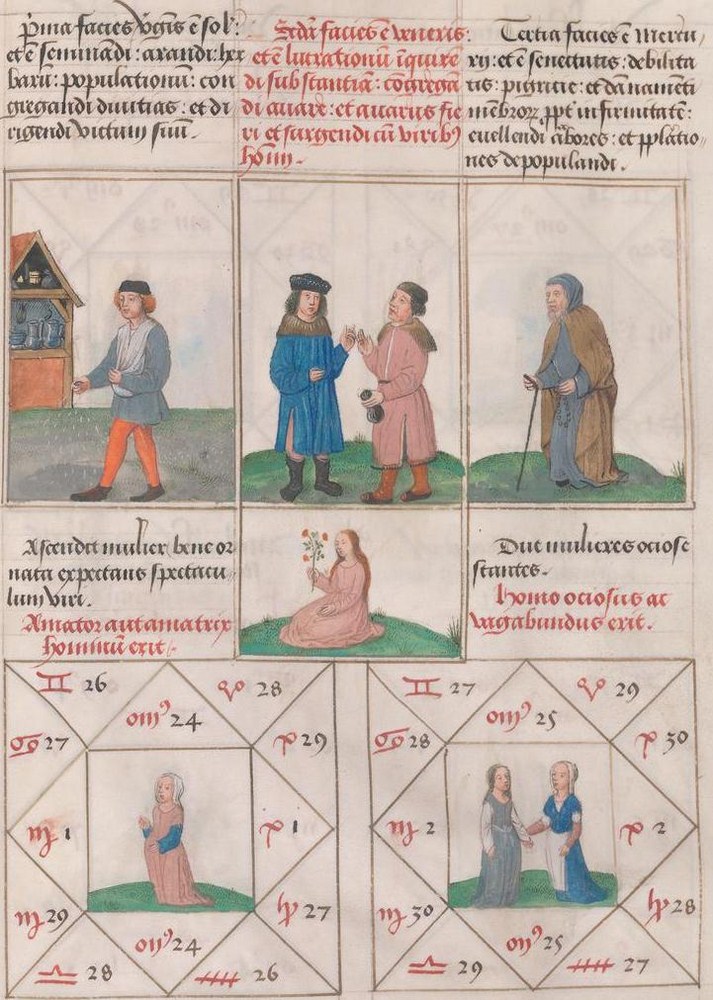 p̄ma facies v̄gīs ē sol':
et ē seminādi: arandi: her
barū: populationū: con
gregandi diuitias: et di
rigendi victum suū.
Sc̄da facies ē veneris:
et ē lucrationū īquire
di substantiā: cōgregā
di auare: et auarus fie
ri et surgendi cū viribꝰ
hoīm.
Tertia facies ē Mercu/
rij: et ē senectutis: debilita
tis: pigritie: et dānamēti
mēbroꝝ ppt' infirmitatē:
euellendi arbores: et pplatio/
nes depopulandi.
Ascendit mulier bene or
nata expectans spectacu
lum viri.
Amator aut amatrix
hominū erit.
Due mulieres ociose
stantes.
Homo ociosus ac
vagabundus erit.
♊ 26
28
24
♋ 27
29
♍ 1
1
♍ 29
27
24
♎ 28
26
♊ 27
29
25
♋ 28
30
♍ 2
2
♍ 30
28
25
♎ 29
27